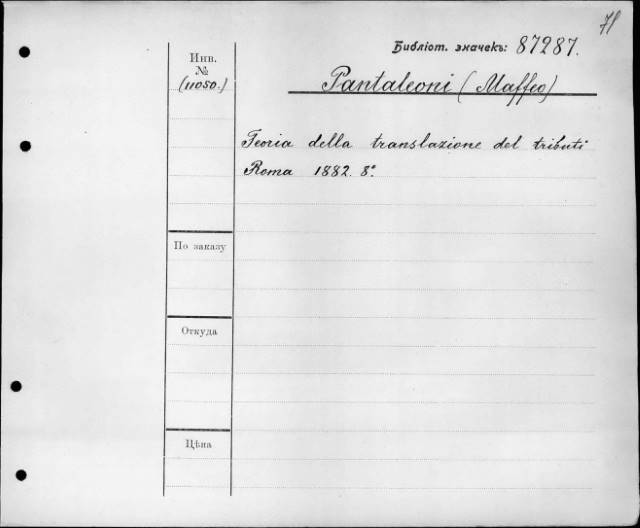 71
Библіот. значекъ: 87287.
Инв.
№
(11050.)
Pantaleoni (Maffeo)
Teoria della translazione del tributi
Roma 1882. 8°.
По заказу
Откуда
Цѣна